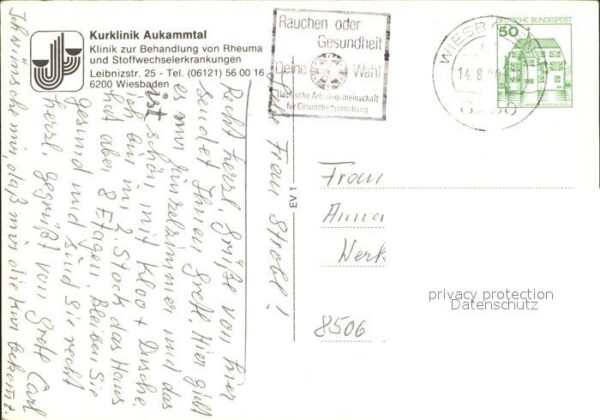 Kurklinik Aukammtal
Klinik zur Behandlung von Rheuma
und Stoffwechselerkrankungen
Leibnizstr. 25 - Tel. (06121) 56 00 16
6200 Wiesbaden
Rauchen oder
Gesundheit
Deine Wahl
Hessische Arbeitsgemeinschaft
für Gesundheitserziehung
WIESBA
14.8.
DEUTSCHE BUNDESPOST
50
EV 1
Liebe Frau Strobl!
Recht herzl. Grüße von hier
sendet Ihnen Gretl. Hier gibt
es nur Einzelzimmer und das
ist schön mit Kloo + Dusche.
Ich bin im 2. Stock das Haus
hat aber 8 Etagen. Bleiben Sie
gesund und sind Sie recht
herzl. gegrüßt von Gretl Carl
Ich wünsche mir, daß mir die Kur bekommt
Frau
Anna
Werk
8506
privacy protection
Datenschutz